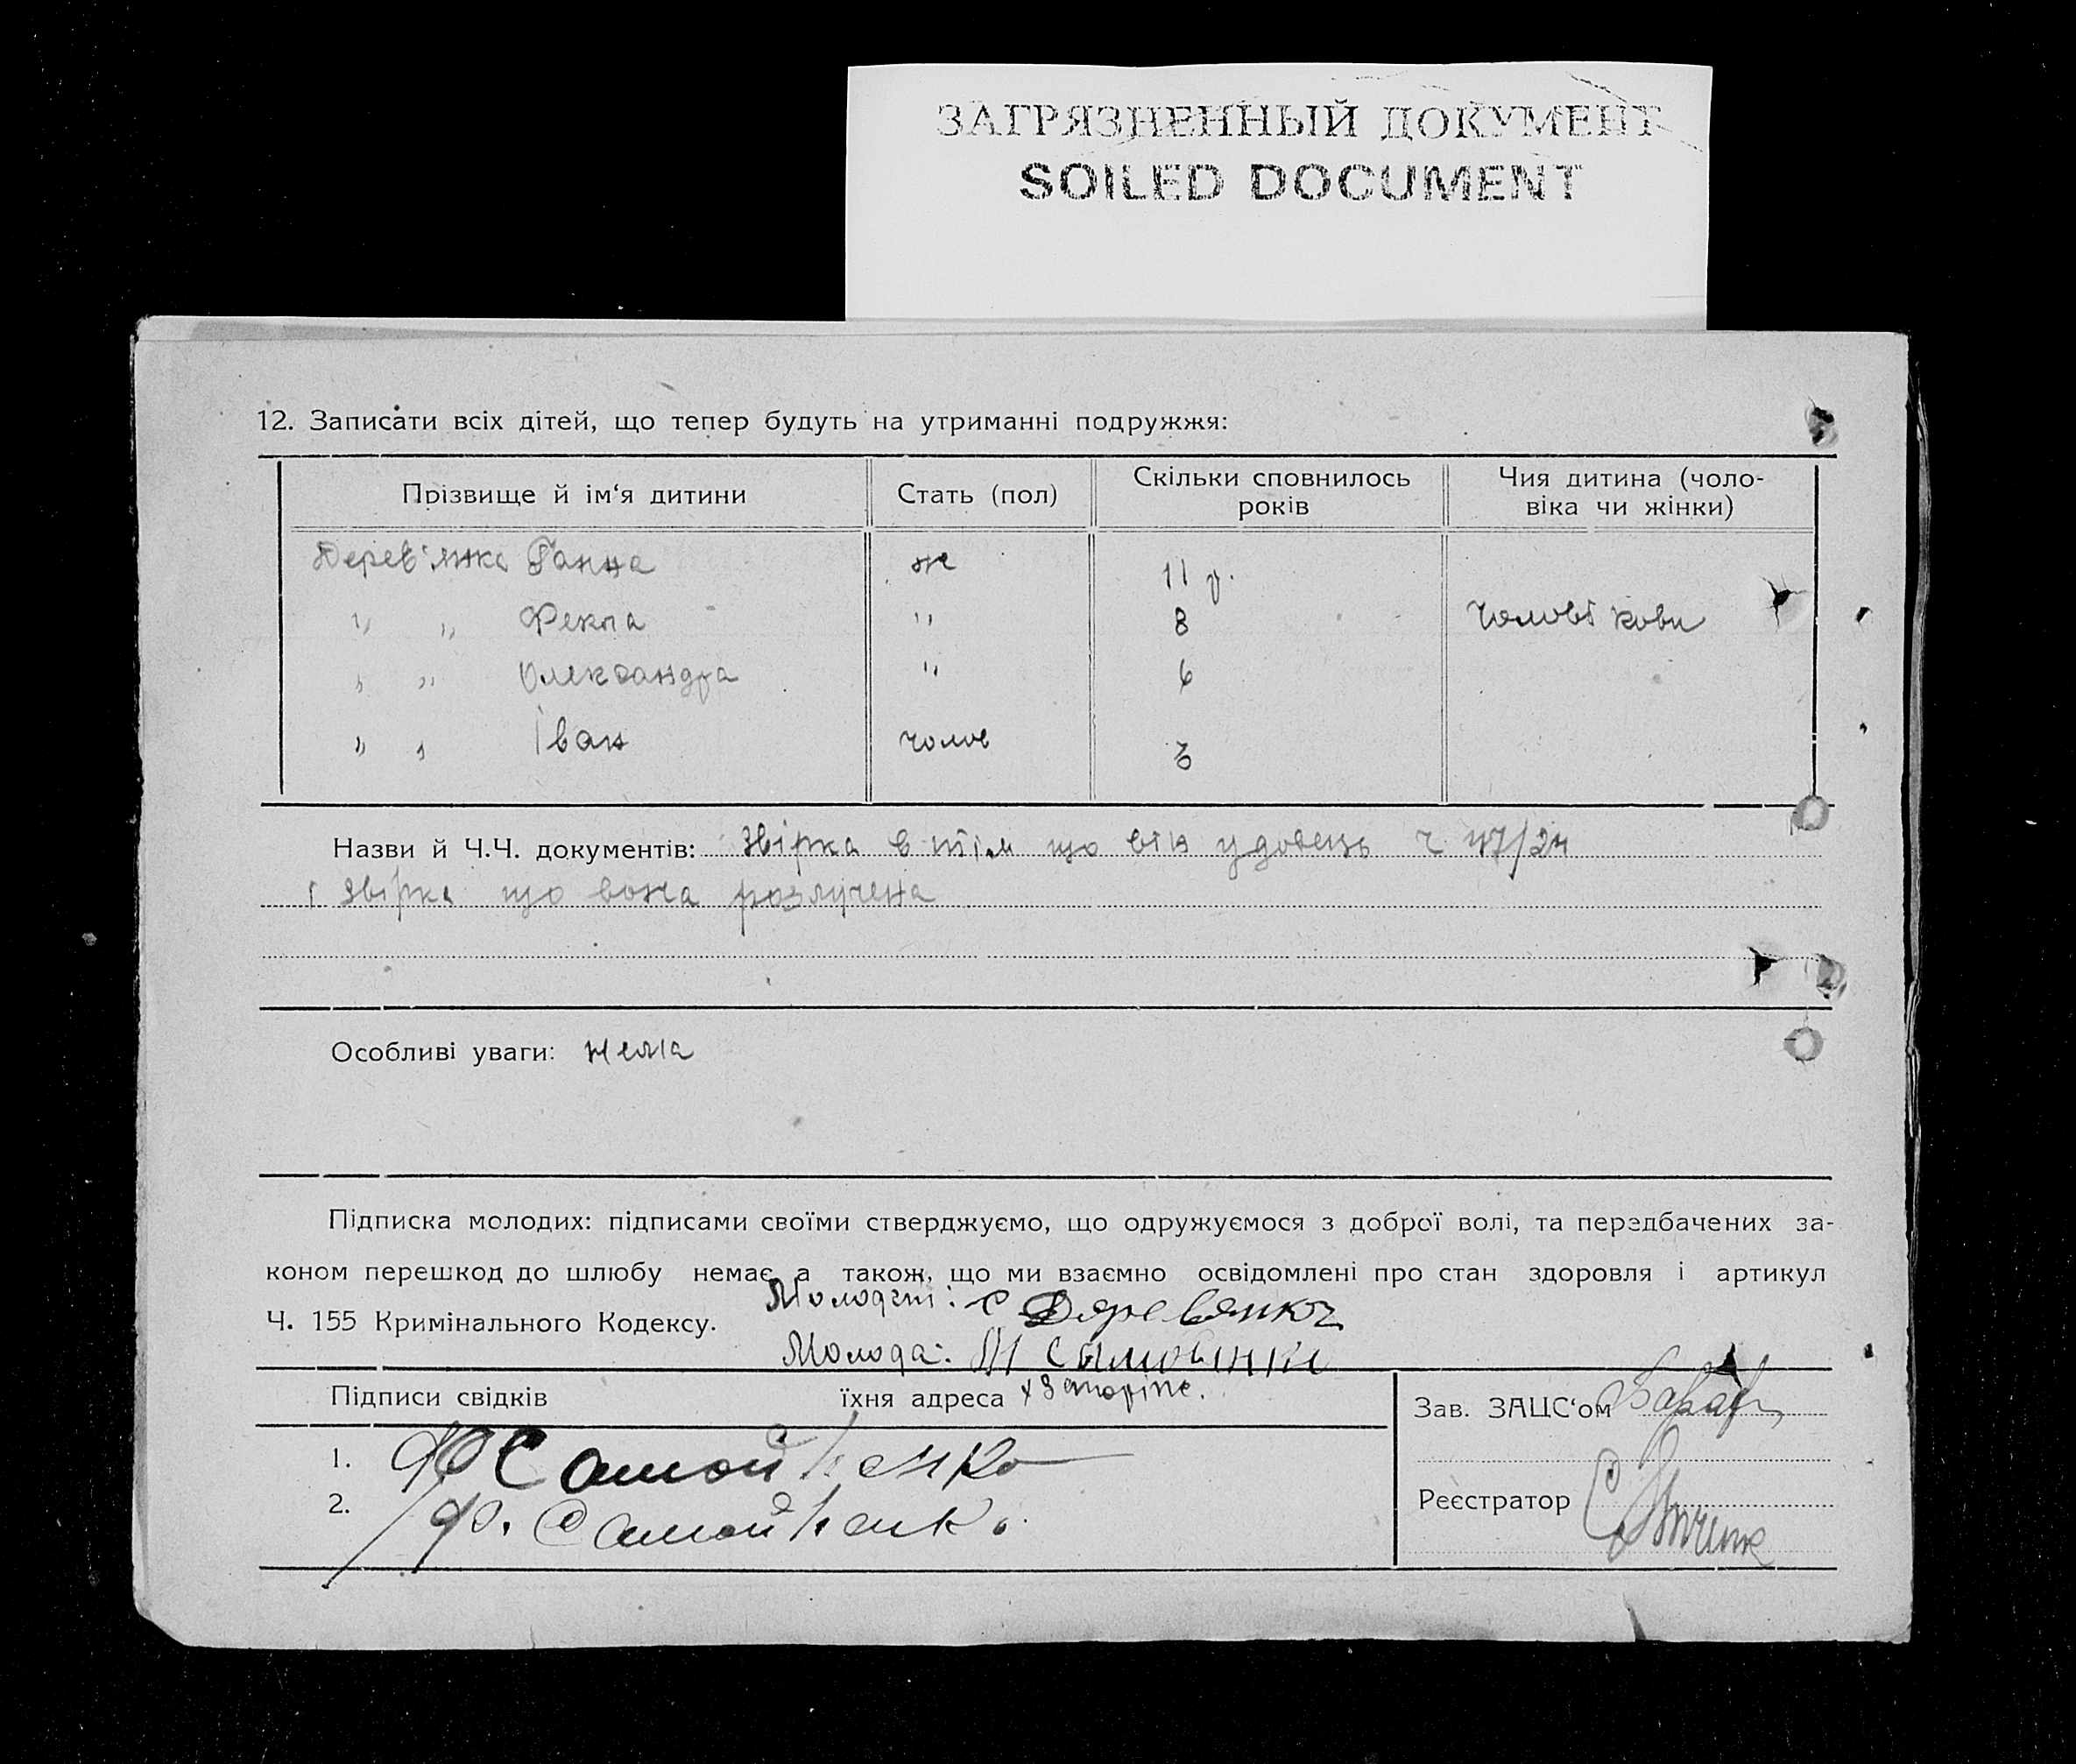 ЗАГРЯЗНЕННЫЙ ДОКУМЕНТ
SOILED DOCUMENT
12. Записати всіх дітей, що тепер будуть на утриманні подружжя:
Прізвище й ім‘я дитини Стать (пол) Скільки сповнилось років Чия дитина (чоловіка чи жінки)
Дерев'янко Ганна же 11 р.
„ „ Фекла „ 8 чоловікови
„ „ Олександра „ 6
„ „ Іван чолов 3
Назви й Ч.Ч. документів: Звірка в тім що він удовець ч 47/24
і звірка що вона розлучена
Особливі уваги: нема
Підписка молодих: підписами своїми стверджуємо, що одружуємося з доброї волі, та передбачених за-
коном перешкод до шлюбу немає, а також, що ми взаємно освідомлені про стан здоровля і артикул
Ч. 155 Кримінального Кодексу. Молодий: С Деревянко
Молода: М
Підписи свідків їхня адреса х
Зав. ЗАЦС‘ом
1. Ф Самойленко
2. Ф. Самойленко
Реєстратор